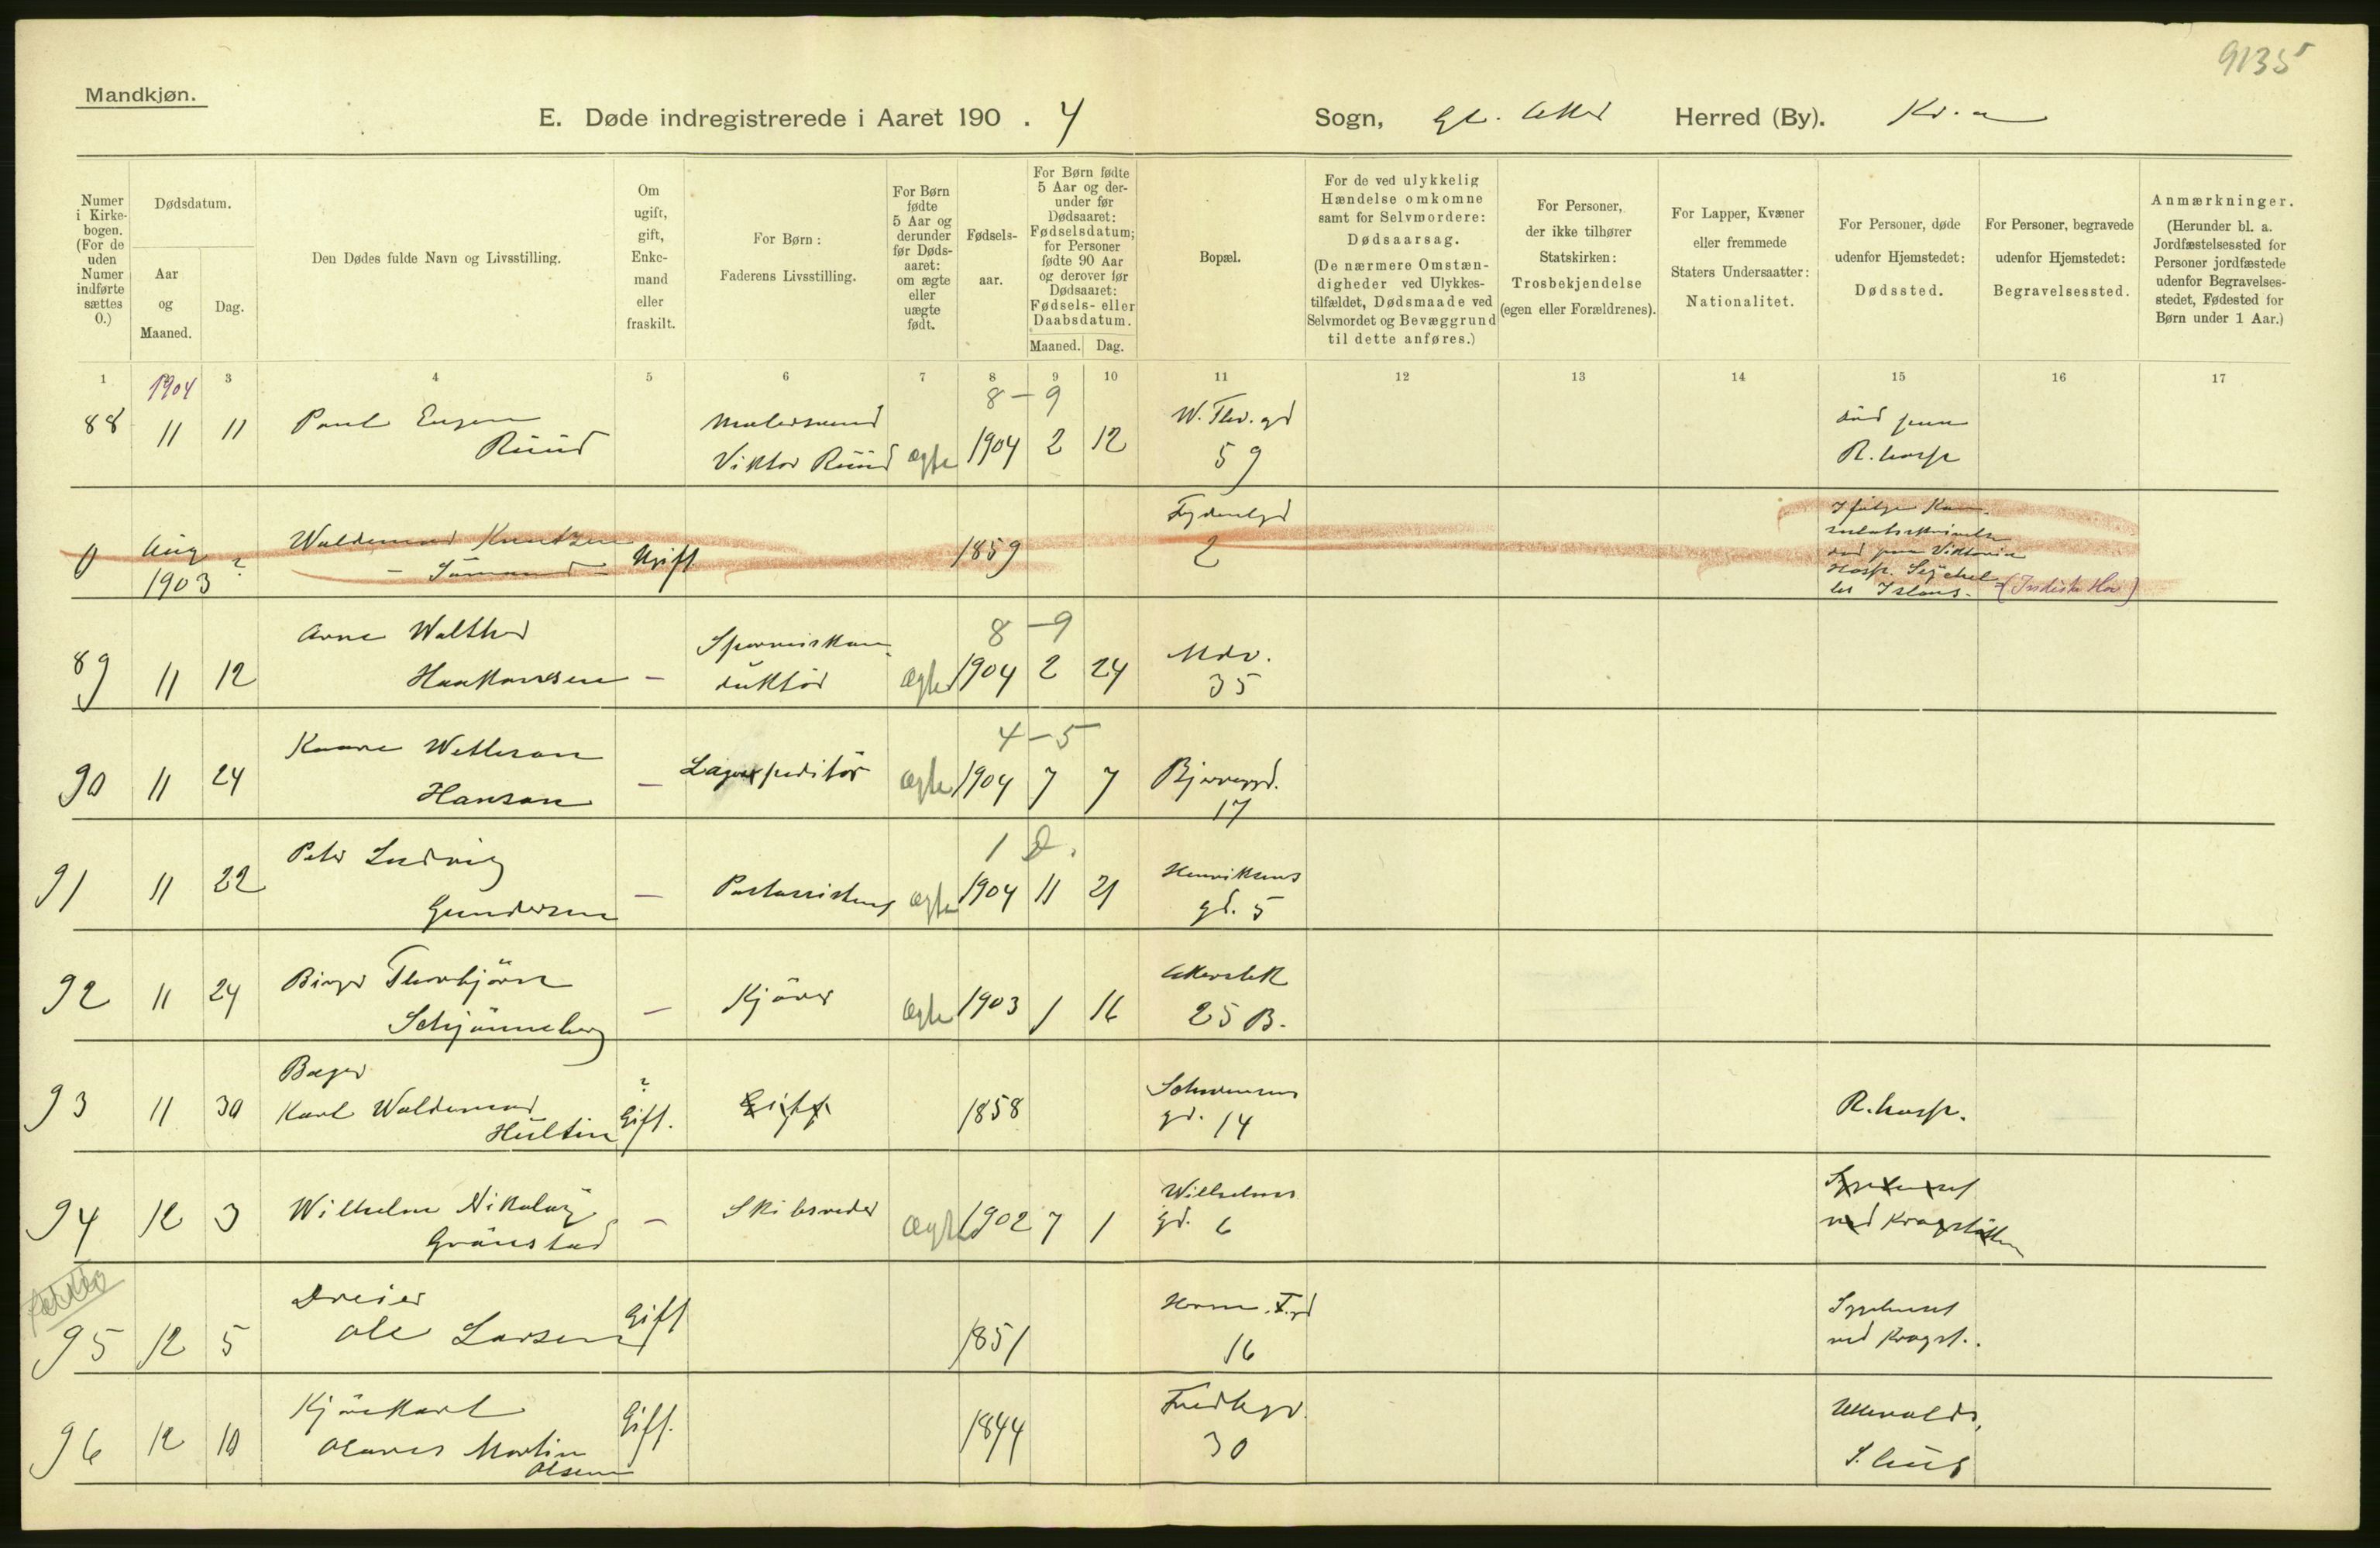 9135
Mandkjøn.
E. Døde indregistrerede i Aaret 190 . 4 Sogn, Gl. Aker Herred (By). Kr.a
Numer i Kirkebogen. (For de uden Numer indførte sættes 0.)
Dødsdatum.
Aar og Maaned.
Dag.
Den Dødes fulde Navn og Livsstilling.
Om ugift, gift, Enkemand eller fraskilt.
For Børn: Faderens Livsstilling.
For Børn fødte 5 Aar og derunder før Dødsaaret: om ægte eller uægte født.
Fødselsaar.
For Børn fødte 5 Aar og derunder før Dødsaaret: Fødselsdatum; for Personer fødte 90 Aar og derover før Dødsaaret: Fødsels- eller Daabsdatum.
Maaned. Dag.
Bopæl.
For de ved ulykkelig Hændelse omkomne samt for Selvmordere: Dødsaarsag. (De nærmere Omstændigheder ved Ulykkestilfældet, Dødsmaade ved Selvmordet og Bevæggrund til dette anføres.)
For Personer, der ikke tilhører Statskirken: Trosbekjendelse (egen eller Forældrenes).
For Lapper, Kvæner eller fremmede Staters Undersaatter: Nationalitet.
For Personer, døde udenfor Hjemstedet: Dødssted.
For Personer, begravede udenfor Hjemstedet: Begravelsessted.
Anmærkninger. (Herunder bl. a. Jordfæstelsessted for Personer jordfæstede udenfor Begravelsesstedet, Fødested for Børn under 1 Aar.)
1 1904 3 4 5 6 7 8 9 10 11 12 13 14 15 16 17
8 - 9
88 11 11 Paul Eugen Ruud Malersvend Viktor Ruud ægte 1904 2 12 W. Thr. gd 59 død paa R. hosp
0 Aug 1903 ? Waldemar Knutzen - Sømand - Ugift 1859 Fydenlgd 2 Ifølge Konsulatsskrivelse død paa Viktoria Hosp. Seychelles Islans. (Indiske Hav)
8 - 9
89 11 12 Arne Walther Haakonsen - Sporveiskonduktør ægte 1904 2 24 Mdv. 35
4 - 5
90 11 24 Kaare Wetleson Hanson - Lagerexpeditør ægte 1904 7 7 Bjerregd. 17
1 D.
91 11 22 Peter Ludvig Gundersen - Postassistent ægte 1904 11 21 Henriksens gd. 5
92 11 24 Birger Thorbjørn Schjønneberg - Kjører ægte 1903 1 16 Akersbk 25 B.
93 11 30 Bager Karl Waldemar Hultin ? Gift. Gift 1858 Schwensens gd. 14 R. hosp.
94 12 3 Wilhelm Nikolay Grønstad - Skibsreder ægte 1902 7 1 Wilhelms gd. 6 Sygehuset ved Krogstøtten
95 12 5 Dreier Ole Larsen Gift 1851 Herm. F. gd 16 Sygehuset ved Krogst.
96 12 10 Kjørekarl Olaves Martin Olsen Gift. 1844 Fredbgd. 30 Ullevolds S.hus